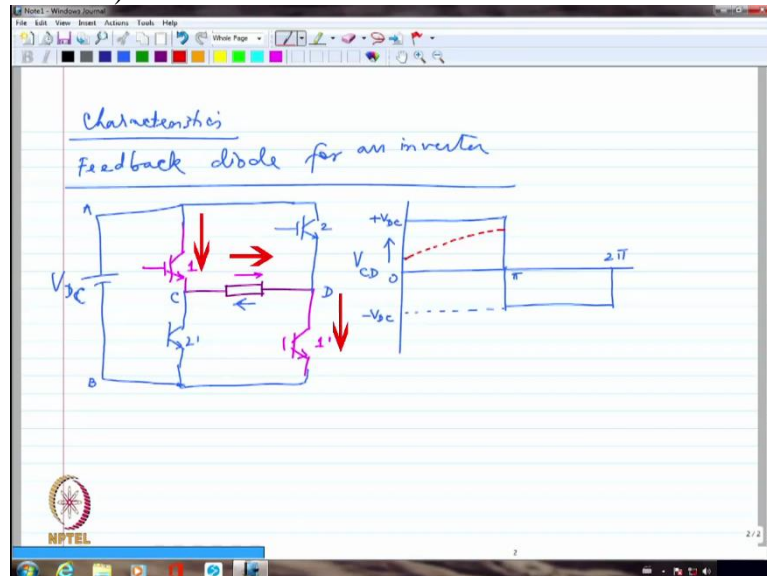 Note1 - Windows Journal
File Edit View Insert Actions Tools Help
Whole Page
B I
Characteristics
Feedback diode for an inverter
A
VDC
1
2
C
D
2'
1'
B
+VDC
VCD
0
-VDC
π
2π
NPTEL
2/2
2